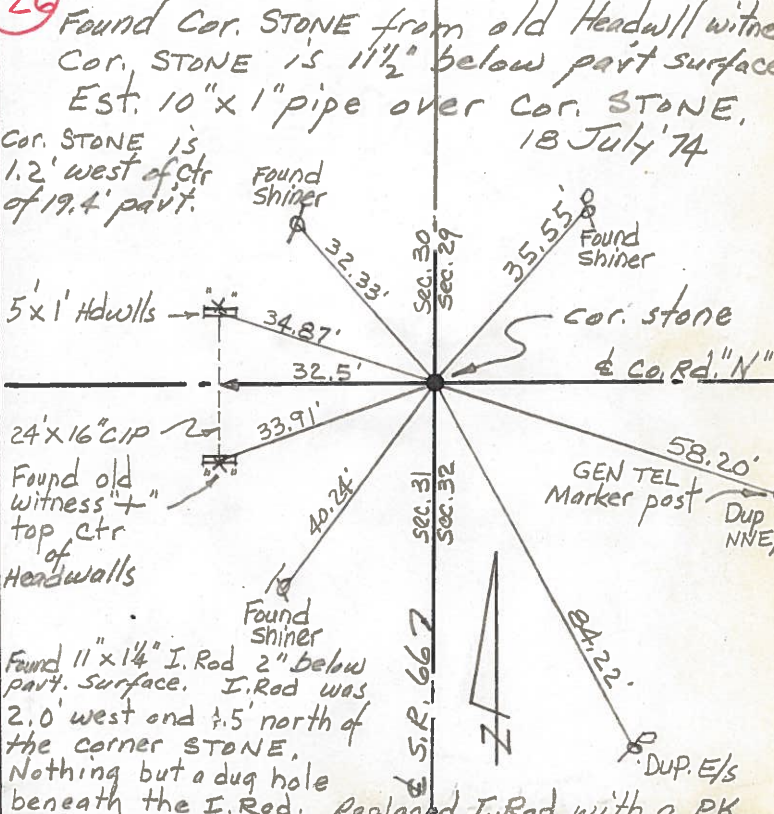 26
Found Cor. STONE from old Headwll witne
Cor. STONE is 11½" below pav't surface
Est. 10"x 1" pipe over Cor. STONE.
18 July '74
Cor. STONE is
1.2' west of Ctr
of 19.4' pav't.
Found
Shiner
32.33'
Sec. 30
Sec. 29
35.55'
Found
Shiner
5'x1' Hdwlls
"X"
34.87'
cor. stone
32.5'
℄ Co. Rd. "N"
24'x16" CIP
33.91'
"X"
58.20'
GEN TEL
Marker post
Dup
NNE/
Found old
witness "+"
top ctr
of
Headwalls
40.24'
Sec. 31
Sec. 32
Found
Shiner
84.22'
℄ S.R. 667
N
DUP. E/S
Found 11"x1¼" I.Rod 2" below
pav't. surface. I.Rod was
2.0' west and .5' north of
the corner STONE.
Nothing but a dug hole
beneath the I.Rod. Replaced I.Rod with a PK